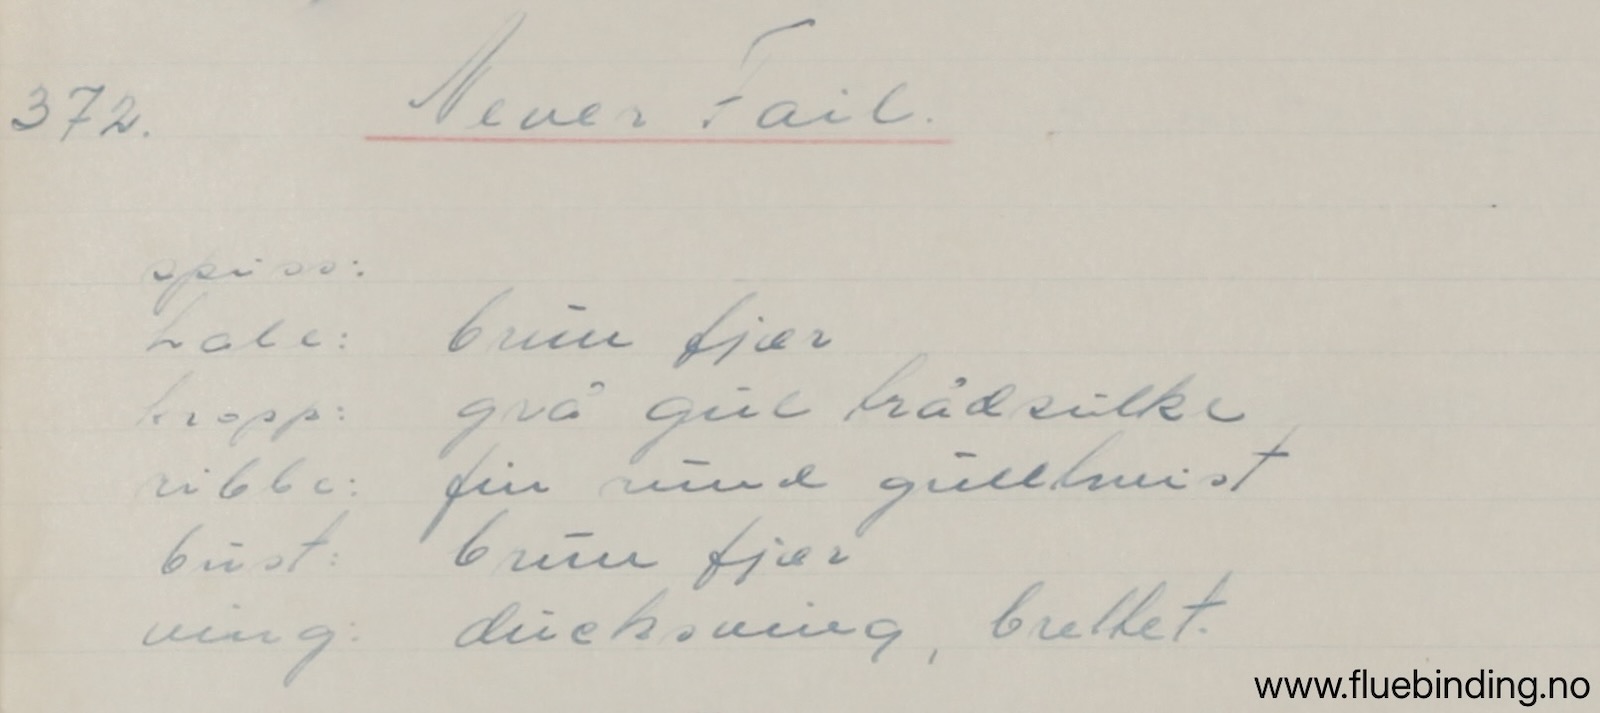 372. Never Fail.
spiss:
hale: brun fjær
kropp: grå gul trådsilke
ribbe: fin rund gulltwist
bust: brun fjær
ving: ducksving, brettet.
www.fluebinding.no